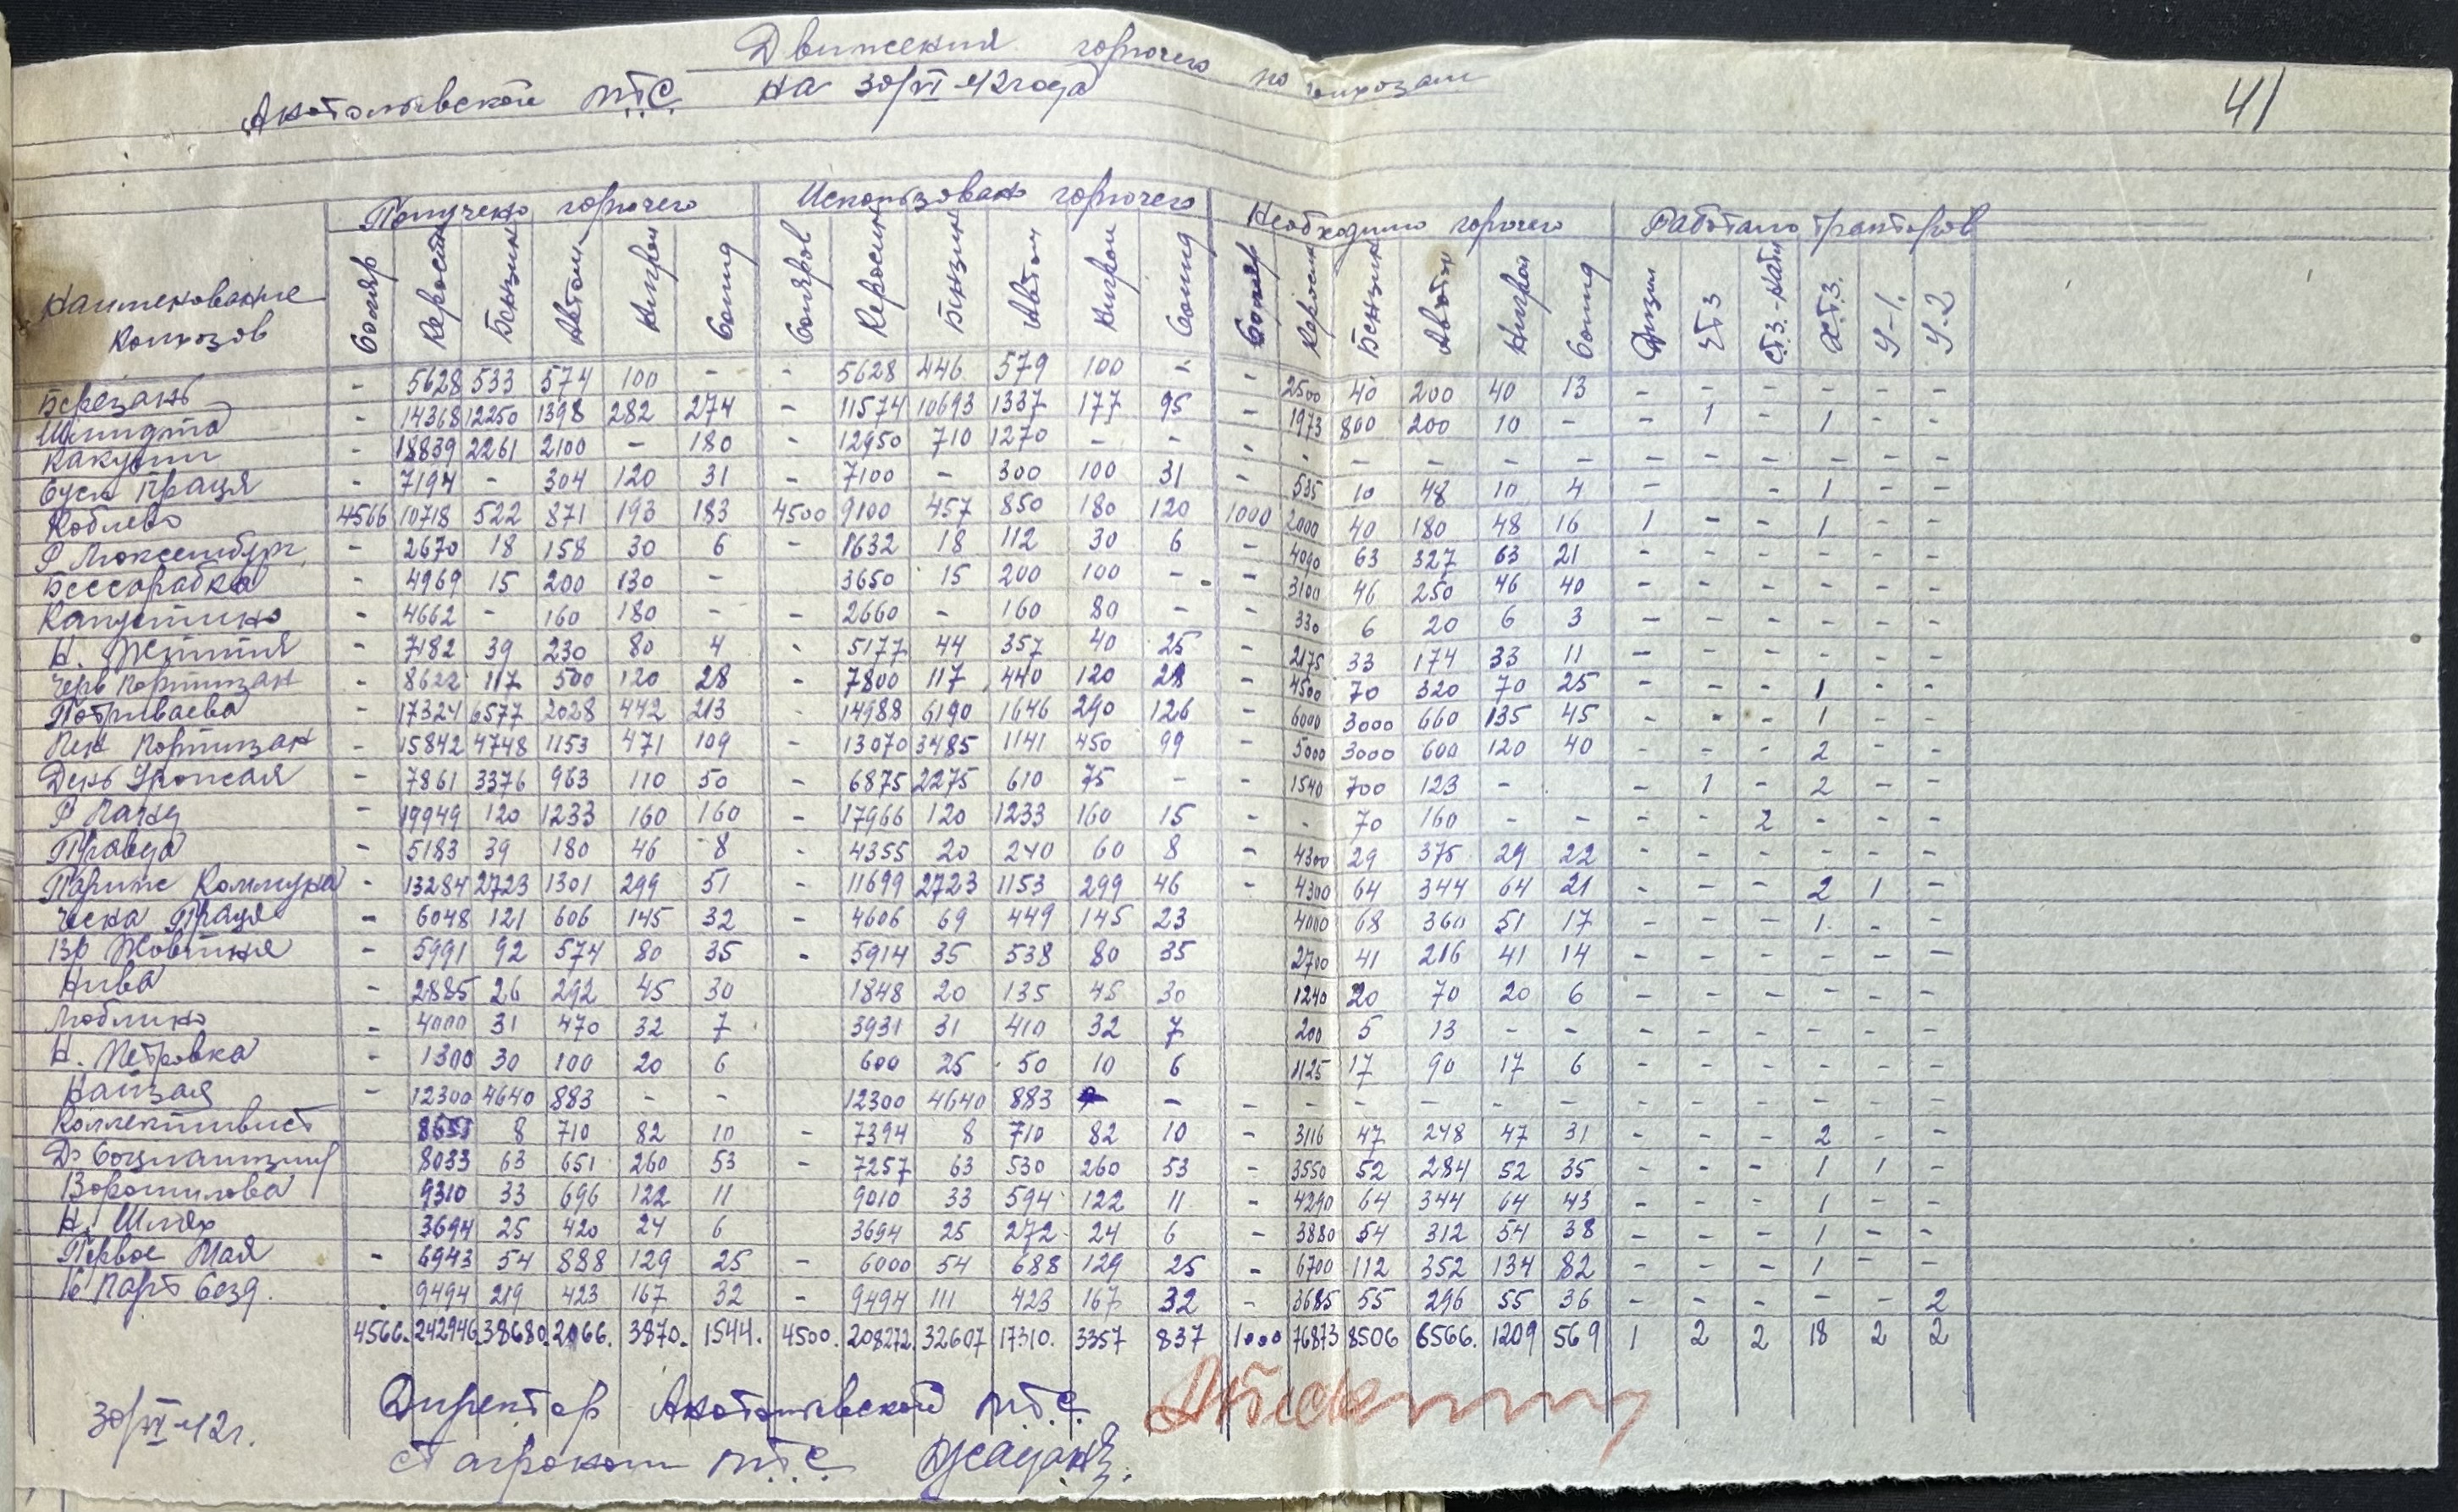 Движения горючего по колхозам
Анатольевской М.Т.С. на 30/VI 42 года
41
Наименование колхозов | Получено горючего | Использован горючего | Необходимо горючего | Работало тракторов
Соляр Керосин Бензин Автол Нигрол Солид | Соляров Керосин Бензин Автол Нигрол Солид | Соляр Керосин Бензин Автол Нигрол Солид | Дизил ЧТЗ СТЗ-нати ХТЗ У-1. У-2
Березань - 5628 533 574 100 - - 5628 446 579 100 - - 2500 40 200 40 13 - - - - - -
Шмидта - 14368 12250 1398 282 274 - 11574 10693 1337 177 95 - 1973 800 200 10 - - 1 - 1 - -
- 18839 2261 2100 - 180 - 12950 710 1270 - - - - - - - - - - - - - -
Праця - 7194 - 304 120 31 - 7100 - 300 100 31 - 535 10 48 10 4 - - 1 - -
Коблево 4566 10718 522 871 193 183 4500 9100 457 850 180 120 1000 2000 40 180 48 16 1 - - 1 - -
Р Люксембург - 2670 18 158 30 6 - 1632 18 112 30 6 - 4090 63 327 63 21 - - - - - -
Бессарабка - 4969 15 200 130 - 3650 15 200 100 - - 3100 46 250 46 40 - - - - - -
Капустино - 4662 - 160 180 - - 2660 - 160 80 - - 330 6 20 6 3 - - - - - -
Н. Життия - 7182 39 230 80 4 - 5177 44 357 40 25 - 2175 33 174 33 11 - - - - - -
Черв Портизан - 8622 117 500 120 28 - 7800 117 440 120 28 - 4500 70 320 70 25 - - - 1 - -
Потриваева - 17324 6577 2028 442 213 - 14988 6190 1646 290 126 - 6000 3000 660 135 45 - - - 1 - -
Портизан - 15842 4748 1153 471 109 - 13070 3485 1141 450 99 - 5000 3000 600 120 40 - - - 2 - -
День Урожая - 7861 3376 963 110 50 - 6875 2275 610 75 - - 1540 700 123 - - 1 - 2 - -
- 19949 120 1233 160 160 - 17966 120 1233 160 15 - - 70 160 - - - - 2 - - -
Правда - 5183 39 180 46 8 - 4355 20 240 60 8 - 4300 29 375 29 22 - - - - - -
Париже Коммуна - 13284 2723 1301 299 51 - 11699 2723 1153 299 46 - 4300 64 344 64 21 - - - 2 1 -
Ческа Праця - 6048 121 606 145 32 - 4606 69 449 145 23 4000 68 360 51 17 - - - 1 - -
13р Жовтня - 5991 92 574 80 35 - 5914 35 538 80 35 2700 41 216 41 14 - - - - - -
Нива - 2885 26 292 45 30 1848 20 135 45 30 1240 20 70 20 6 - - - - - -
Люблино - 4000 31 470 32 7 3931 31 410 32 7 200 5 13 - - - - - - - -
Н. Петровка - 1300 30 100 20 6 600 25 50 10 6 1125 17 90 17 6 - - - - - -
- 12300 4640 883 - - 12300 4640 883 - - - - - - - - - - - - -
Коллективист 8 710 82 10 - 7394 8 710 82 10 - 3116 47 248 47 31 - - - 2 - -
8033 63 651 260 53 - 7257 63 530 260 53 - 3550 52 284 52 35 - - - 1 1 -
Ворошилова 9310 33 696 122 11 9010 33 594 122 11 - 4290 64 344 64 43 - - - 1 - -
Н. Шлях 3694 25 420 24 6 3694 25 272 24 6 - 3880 54 312 54 38 - - - 1 - -
Первое Мая - 6943 54 888 129 25 - 6000 54 688 129 25 - 6700 112 352 134 82 - - - 1 - -
16 Парт Сезд. 9494 219 423 167 32 - 9494 111 423 167 32 - 3685 55 296 55 36 - - - - - 2
4566. 242946 38680. 3870. 1544. 4500. 208272. 32607 17310. 3357 837 1000 76873 8506 6566. 1209 569 1 2 2 18 2 2
30/VI 42г.
Директор Анатольевской М.Т.С.
Ст агроном М.Т.С.